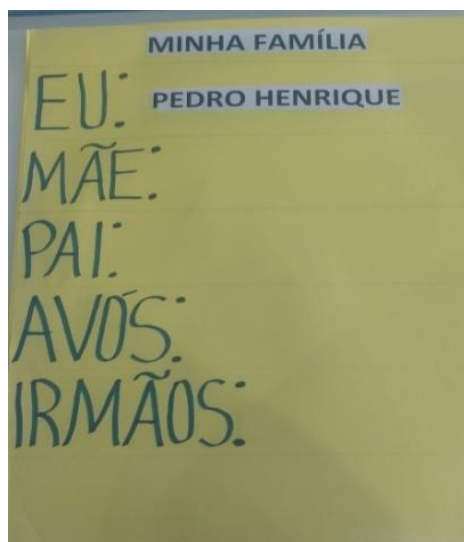 MINHA FAMÍLIA
EU: PEDRO HENRIQUE
MÃE:
PAI:
AVÓS:
IRMÃOS: